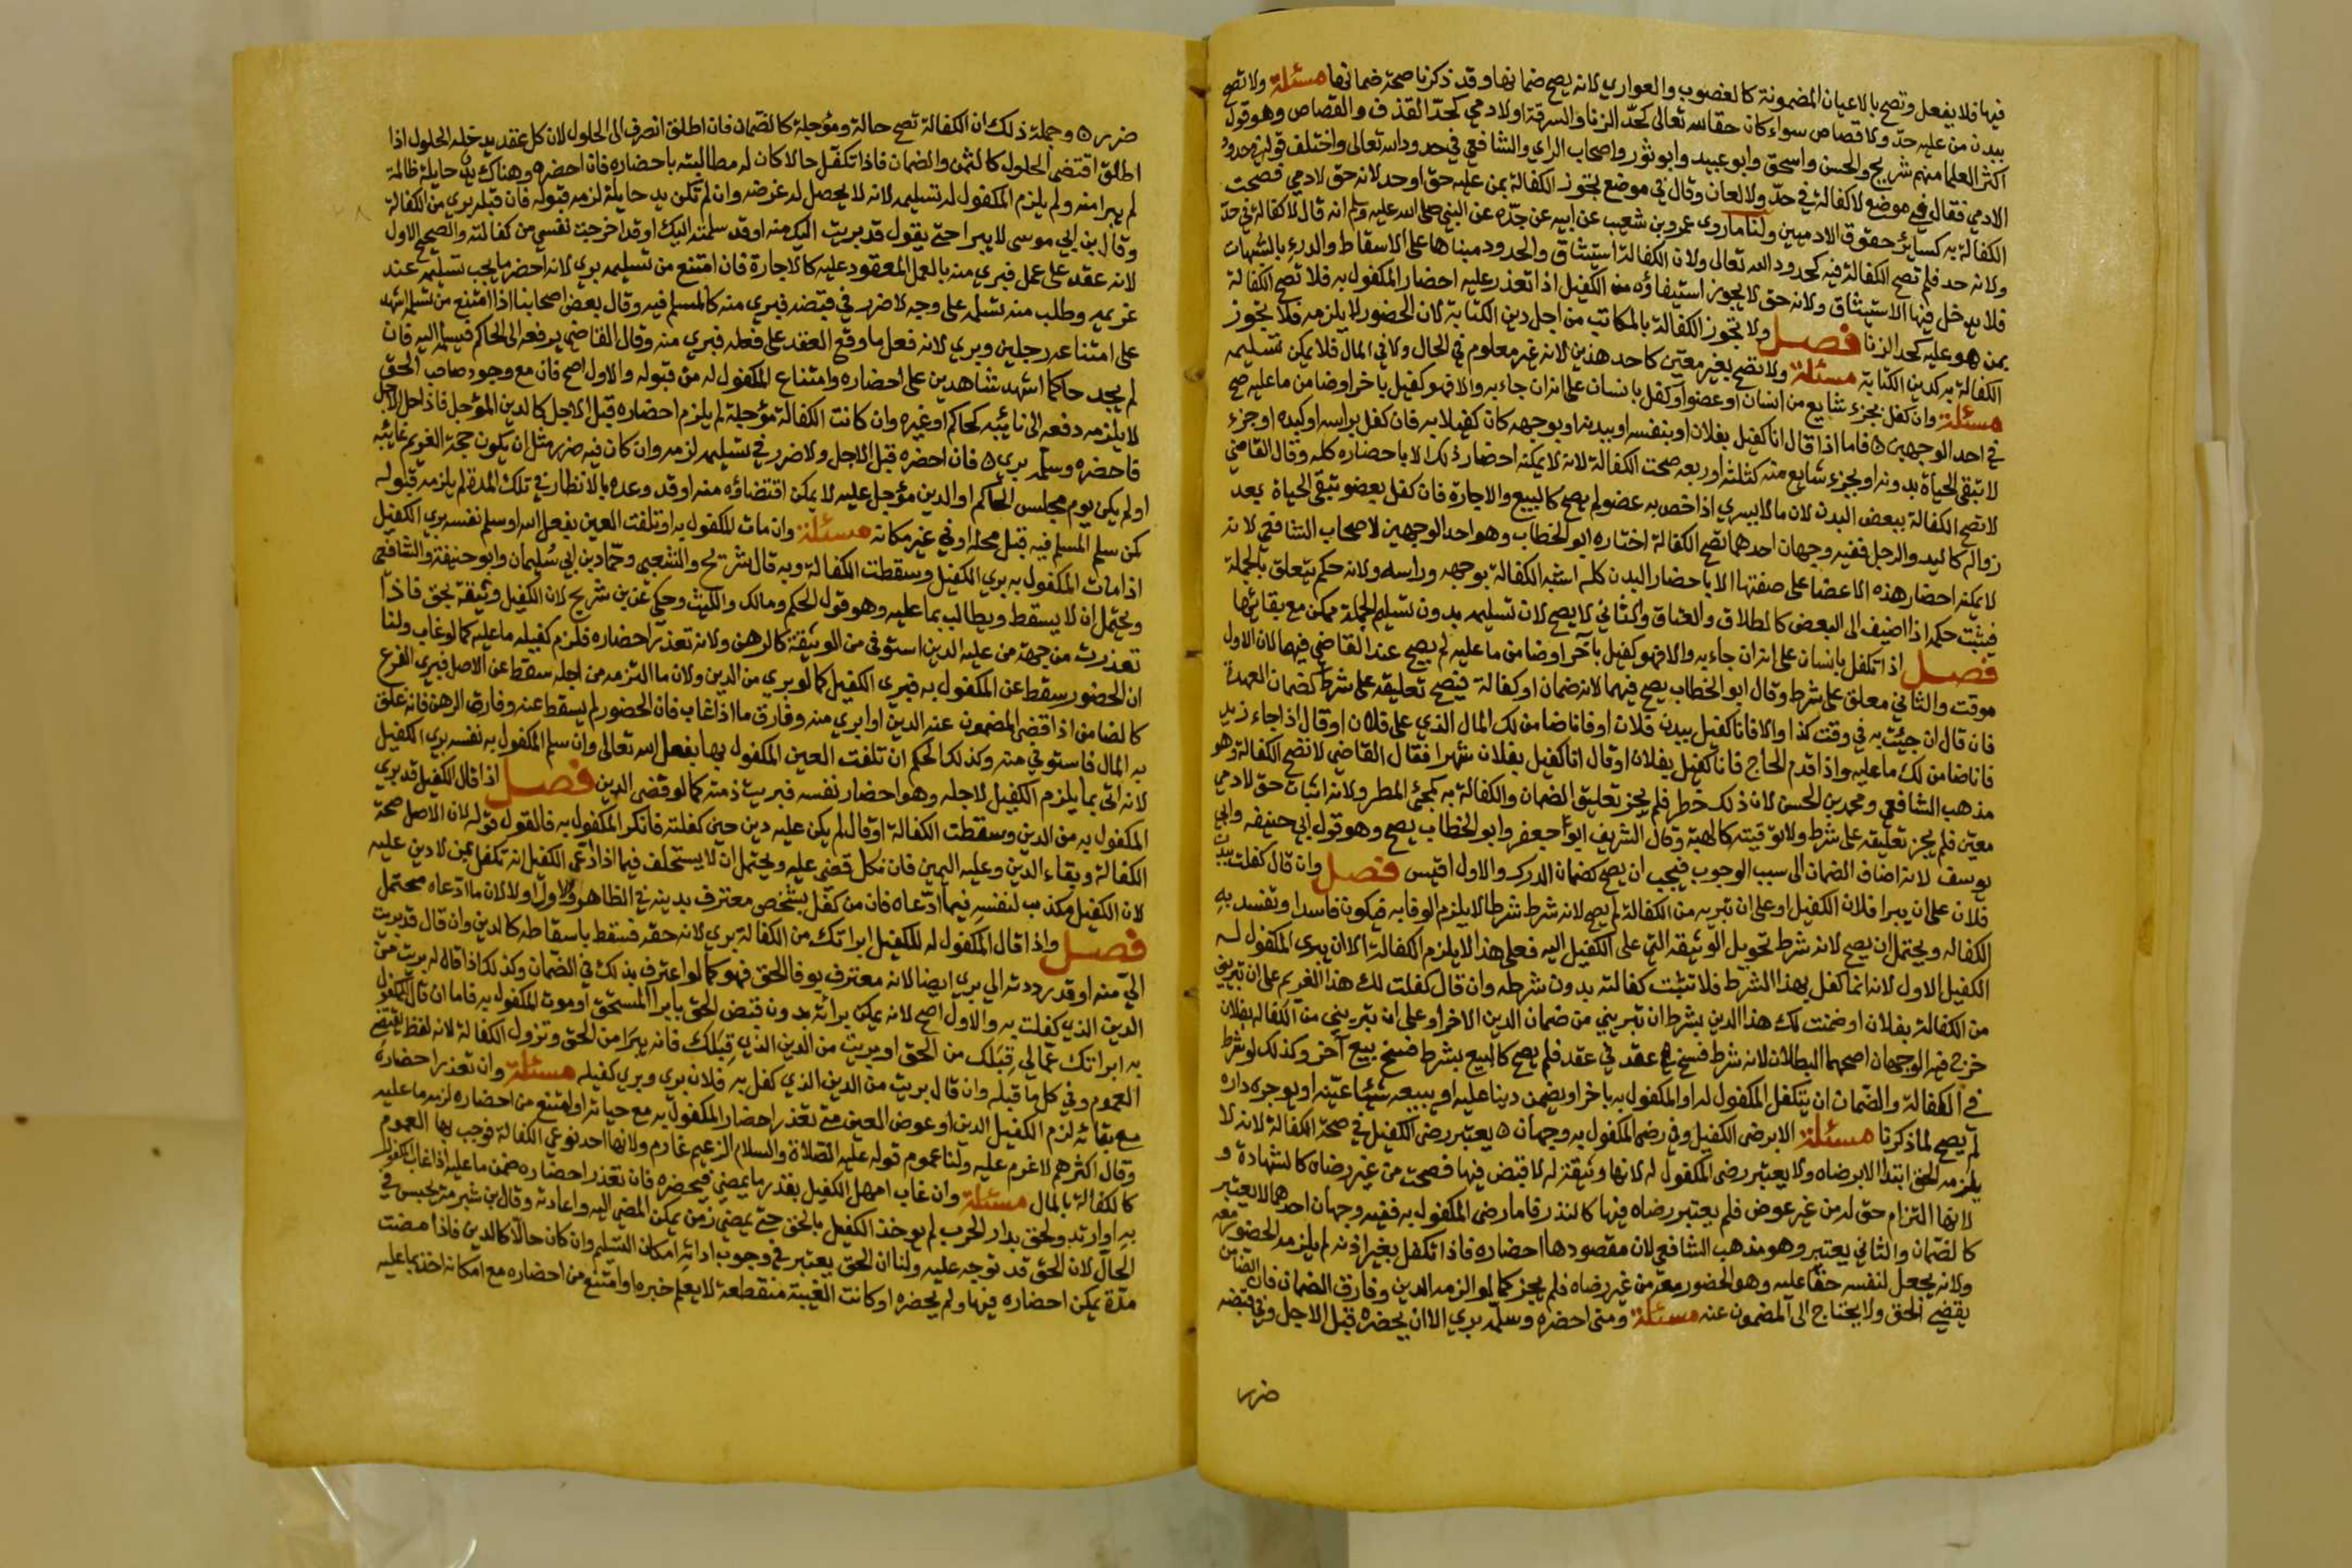 فيها فلا يفعل وتصح بالاعيان المضمونة كالغصوب والعواري لانه يصح ضمانها وقد ذكرنا صحة ضمانها مسئلة ولا تصح
ببدن من عليه حد ولا قصاص سواء كان حقا لله تعالى كحد الزنا والسرقة او لادمي كحد القذف والقصاص وهو قول
اكثر العلما منهم شريح والحسن واسحق وابو عبيد وابو ثور واصحاب الراي والشافعي في حدود الله تعالى واختلف قوله في حدود
الادمي فقال في موضع لا كفالة في حد ولا لعان وقال في موضع تجوز الكفالة بمن عليه حق او حد لانه حق لادمي فصحت
الكفالة به كسائر حقوق الادميين ولنا ما روي عمرو بن شعيب عن ابيه عن جده عن النبي صلى الله عليه وسلم انه قال لا كفالة في حد
ولانه حد فلم تصح الكفالة فيه كحدود الله تعالى ولان الكفالة استيثاق والحدود مبناها على الاسقاط والدرء بالشبهات
فلا يدخل فيها الاستيثاق ولانه حق لا يجوز استيفاؤه من الكفيل اذا تعذر عليه احضار المكفول به فلا تصح الكفالة
بمن هو عليه كحد الزنا فصل ولا تجوز الكفالة بالمكاتب من اجل دين الكتابة لان الحضور لا يلزمه فلا تجوز
الكفالة به كدين الكتابة مسئلة ولا تصح بغير معين كاحد هذين لانه غير معلوم في الحال ولا في المال فلا يمكن تسليمه
مسئلة وان كفل بجزء شايع من انسان او عضو او كفل بانسان على انه ان جاء به والا فهو كفيل باخر او ضامن ما عليه صح
في احد الوجهين ه فاما اذا قال انا كفيل بفلان او بنفسه او ببدنه او بوجهه كان كفيلا به فان كفل براسه او كبده او جزء
لا تبقى الحياة بدونه او بجزء شايع منه كثلثه او ربعه صحت الكفالة لانه لا يمكنه احضار ذلك الا باحضاره كله وقال القاضي
لا تصح الكفالة ببعض البدن لان ما لا يسري اذا خص به عضو لم يصح كالبيع والاجارة فان كفل بعضو تبقى الحياة بعد
زواله كاليد والرجل ففيه وجهان احدهما تصح الكفالة اختاره ابو الخطاب وهو احد الوجهين لاصحاب الشافعي لانه
لا يمكنه احضار هذه الاعضا على صفتها الا باحضار البدن كله اشبه الكفالة بوجهه وراسه ولانه حكم يتعلق بالجملة
فيثبت حكمه اذا اضيف الى البعض كالطلاق والعتاق والثاني لا يصح لان تسليمه بدون تسليم الجملة ممكن مع بقائها
فصل اذا تكفل بانسان على انه ان جاء به والا فهو كفيل باخر او ضامن ما عليه لم يصح عند القاضي فيهما لان الاول
موقت والثاني معلق على شرط وقال ابو الخطاب يصح فيهما لانه ضمان او كفالة فيصح تعليقه على شرط كضمان العهدة
فان قال ان جئت به في وقت كذا والا فانا كفيل ببدن فلان او فانا ضامن لك المال الذي على فلان او قال اذا جاء زيد
فانا ضامن لك ما عليه واذا قدم الحاج فانا كفيل بفلان او قال انا كفيل بفلان شهرا فقال القاضي لا تصح الكفالة وهو
مذهب الشافعي ومحمد بن الحسن لان ذلك خطر فلم يجز تعليق الضمان والكفالة به كمجئ المطر ولانه اثبات حق لادمي
معين فلم يجز تعليقه على شرط ولا توقيته كالهبة وقال الشريف ابو جعفر وابو الخطاب يصح وهو قول ابي حنيفه وابي
يوسف لانه اضاف الضمان الى سبب الوجوب فيجب ان يصح كضمان الدرك والاول اقيس فصل وان قال كفلت ببدن
فلان على ان يبرا فلان الكفيل او على ان تبريه من الكفالة لم يصح لانه شرط شرطا لا يلزم الوفا به فيكون فاسدا وتفسد به
الكفاله ويحتمل ان يصح لانه شرط تحويل الوثيقه التي على الكفيل اليه فعلى هذا لا يلزم الكفالة الا ان يبرى المكفول له
الكفيل الاول لانه انما كفل بهذا الشرط فلا تثبت كفالته بدون شرطه وان قال كفلت لك هذا الغريم على ان تبريني
من الكفالة بفلان او ضمنت لك هذا الدين بشرط ان تبريني من ضمان الدين الاخر او على ان تبريني من الكفاله بفلان
خرج فيه الوجهان اصحهما البطلان لانه شرط فسخ عقد في عقد فلم يصح كالبيع بشرط فسخ بيع آخر وكذلك لو شرط
في الكفالة والضمان ان يتكفل المكفول له او المكفول به باخر او يضمن دينا عليه او يبيعه شيئا عينه او يوجره داره
لم يصح لما ذكرنا مسئلة الا برضى الكفيل وفي رضى المكفول به وجهان ه يعتبر رضى الكفيل في صحة الكفالة لانه لا
يلزمه الحق ابتدا الا برضاه ولا يعتبر رضى المكفول له لانها وثيقة له لا قبض فيها فصحت من غير رضاه كالشهادة و
لانها التزام حق له من غير عوض فلم يعتبر رضاه فيها كالنذر فاما رضى المكفول به ففيه وجهان احدهما لا يعتبر
كالضمان والثاني يعتبر وهو مذهب الشافعي لان مقصودها احضاره فاذا تكفل بغير اذنه لم يلزمه الحضور معه
ولانه يجعل لنفسه حقا عليه وهو الحضور معه من غير رضاه فلم يجز كما لو الزمه الدين وفارق الضمان فان الضامن
يقضي الحق ولا يحتاج الى المضمون عنه مسئلة ومتى احضره وسلمه بري الا ان يحضره قبل الاجل وفي قبضه
ضرر
ضرر ه وجملة ذلك ان الكفالة تصح حالة ومؤجلة كالضمان فان اطلق انصرف الى الحلول لان كل عقد يدخله الحلول اذا
اطلق اقتضى الحلول كالثمن والضمان فاذا تكفل حالا كان له مطالبته باحضاره فان احضره وهناك يد حايلة ظالمة
لم يبرا منه ولم يلزم المكفول له تسليمه لانه لا يحصل له غرضه وان لم تكن يد حايلة لزمه قبوله فان قبله بري من الكفالة
وقال بن ابي موسى لا يبرا حتى يقول قد بريت اليك منه او قد سلمته اليك او قد اخرجت نفسي من كفالته والصحيح الاول
لانه عقد على عمل فبري منه بالعمل المعقود عليه كالاجارة فان امتنع من تسليمه بري لانه احضر ما يجب تسليمه عند
غريمه وطلب منه تسلمه على وجه لا ضرر في قبضه فبري منه كالمسلم فيه وقال بعض اصحابنا اذا امتنع من تسلمه اشهد
على امتناعه رجلين وبري لانه فعل ما وقع العقد على فعله فبري منه وقال القاضي يرفعه الى الحاكم فيسلمه اليه فان
لم يجد حاكما اشهد شاهدين على احضاره وامتناع المكفول له من قبوله والاول اصح فان مع وجود صاحب الحق
لا يلزمه دفعه الى نائبه كحاكم او غيره وان كانت الكفالة مؤجلة لم يلزم احضاره قبل الاجل كالدين المؤجل فاذا حل الاجل
فاحضره وسلمه بري ه فان احضره قبل الاجل ولا ضرر في تسليمه لزمه وان كان فيه ضرر مثل ان يكون حجة الغريم غائبه
او لم يكن يوم مجلس الحاكم او الدين مؤجل عليه لا يمكن اقتضاؤه منه او قد وعده بالانظار في تلك المدة لم يلزمه قبوله
كمن سلم المسلم فيه قبل محله او في غير مكانه مسئلة وان مات المكفول به او تلفت العين بفعل الله او سلم نفسه بري الكفيل
اذا مات المكفول به بري الكفيل وسقطت الكفالة وبه قال شريح والشعبي وحماد بن ابي سليمان وابو حنيفة والشافعي
ويحتمل ان لا يسقط ويطالب بما عليه وهو قول الحكم ومالك والليث وحكي عن بن شريح لان الكفيل وثيقة بحق فاذا
تعذرت من جهة من عليه الدين استوفى من الوثيقة كالرهن ولانه تعذر احضاره فلزم كفيله ما عليه كما لو غاب ولنا
ان الحضور سقط عن المكفول به فبري الكفيل كما لو بري من الدين ولان ما التزمه من اجله سقط عن الاصل فبري الفرع
كالضامن اذا قضى المضمون عنه الدين او ابري منه وفارق ما اذا غاب فان الحضور لم يسقط عنه وفارق الرهن فانه علق
به المال فاستوفي منه وكذلك الحكم ان تلفت العين المكفول بها بفعل الله تعالى وان سلم المكفول به نفسه بري الكفيل
لانه اتى بما يلزم الكفيل لاجله وهو احضار نفسه فبريت ذمته كما لو قضى الدين فصل اذا قال الكفيل قد بري
المكفول به من الدين وسقطت الكفالة او قال لم يكن عليه دين حين كفلته فانكر المكفول به فالقول قوله لان الاصل صحة
الكفالة وبقاء الدين وعليه اليمين فان نكل قضي عليه ويحتمل ان لا يستحلف فيما اذا ادعى الكفيل انه تكفل بمن لا دين عليه
لان الكفيل مكذب لنفسه فيما ادعاه فان من كفل بشخص معترف بدينه في الظاهر والاول اولا لان ما ادعاه محتمل
فصل واذا قال المكفول له للكفيل ابراتك من الكفالة بري لانه حقه فسقط باسقاطه كالدين وان قال قد بريت
الي منه او قد رددته الي بري ايضا لانه معترف بوفا الحق فهو كما لو اعترف بذلك في الضمان وكذلك اذا قال له بريت من
الدين الذي كفلت به والاول اصح لانه يمكن برائه بدون قبض الحق بابرا المستحق او موت المكفول به فاما ان قال للمكفول
به ابراتك عما لي قبلك من الحق او بريت من الدين الذي قبلك فانه يبرا من الحق وتزول الكفالة لانه لفظ يقتضي
العموم وفي كل ما قبله وان قال بريت من الدين الذي كفل به فلان بري وبري كفيله مسئلة وان تعذر احضاره
مع بقائه لزم الكفيل الدين او عوض العين متى تعذر احضار المكفول به مع حياته او امتنع من احضاره لزمه ما عليه
وقال اكثرهم لا غرم عليه ولنا عموم قوله عليه الصلاة والسلام الزعيم غارم ولانها احد نوعي الكفالة فوجب بها العموم
كالكفالة بالمال مسئلة وان غاب امهل الكفيل بقدر ما يمضي فيحضره فان تعذر احضاره ضمن ما عليه اذا غاب المكفول
به او ارتد ولحق بدار الحرب لم يوخذ الكفيل بالحق حتى يمضي زمن يمكن المضي اليه واعادته وقال بن شبرمة يحبس في
الحال لان الحق قد توجه عليه ولنا ان الحق يعتبر في وجوب ادائه امكان التسليم وان كان حالا كالدين فاذا مضت
مدة يمكن احضاره فيها ولم يحضره او كانت الغيبة منقطعة لا يعلم خبره او امتنع من احضاره مع امكانه اخذ بما عليه